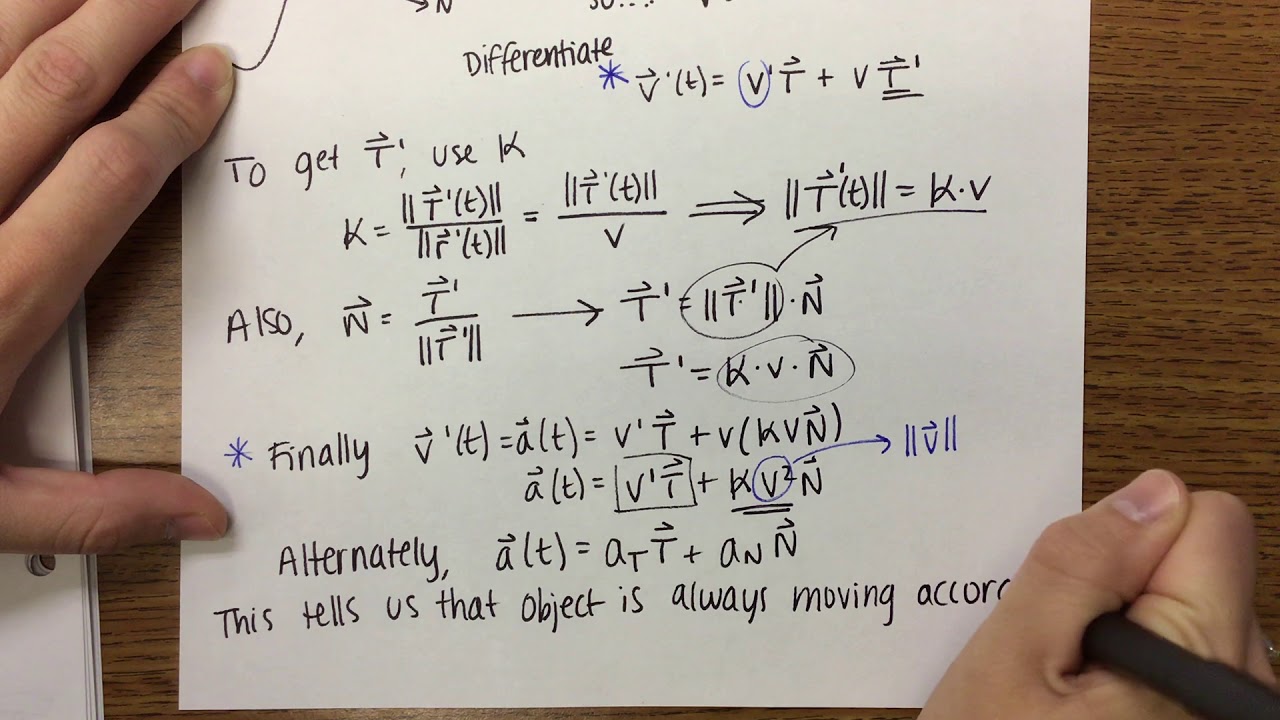 N so....
Differentiate
* v⃗'(t) = v'T⃗ + v T⃗'
To get T⃗', use K
K = ||T⃗'(t)|| / ||r⃗'(t)|| = ||T⃗'(t)|| / v ⟹ ||T⃗'(t)|| = K·v
Also, N⃗ = T⃗' / ||T⃗'|| → T⃗' = ||T⃗'||·N⃗
T⃗' = K·v·N⃗
* Finally v⃗'(t) = a⃗(t) = v'T⃗ + v(KvN⃗) → ||v⃗||
a⃗(t) = v'T⃗ + Kv²N⃗
Alternately, a⃗(t) = a_T T⃗ + a_N N⃗
This tells us that object is always moving accor